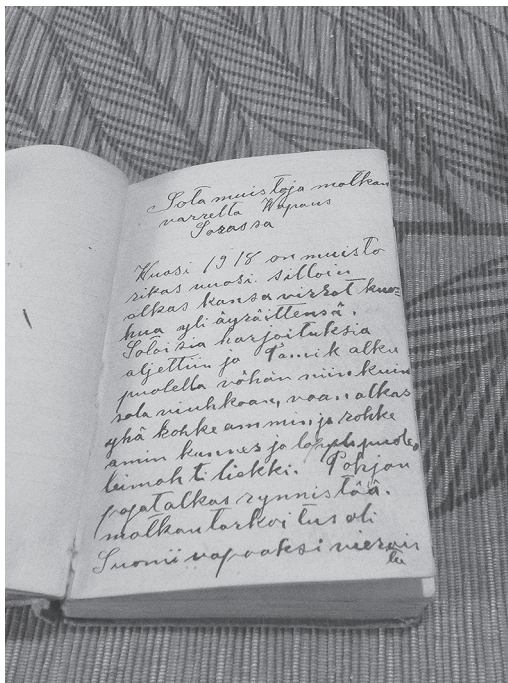 Sota muistoja matkan
varrelta Wapaus
Sorassa
Wuosi 1918 on muisto
rikas vuosi. silloin
alkas kansa virrat kuo=
hua yli äyräittensä.
Sotoisia harjoituksia
aljettiin ja Tamik alku
puolella vähän niin kuin
sala viuhkaan, vaan alkas
yhä kohke ammin ja rohke
amin kunnes ja loppupuolel
leimahti liekki. Pohjan
pojat alkas rynnistää.
matkan tarkoitus oli
Suomi vapaaksi vierais
ta